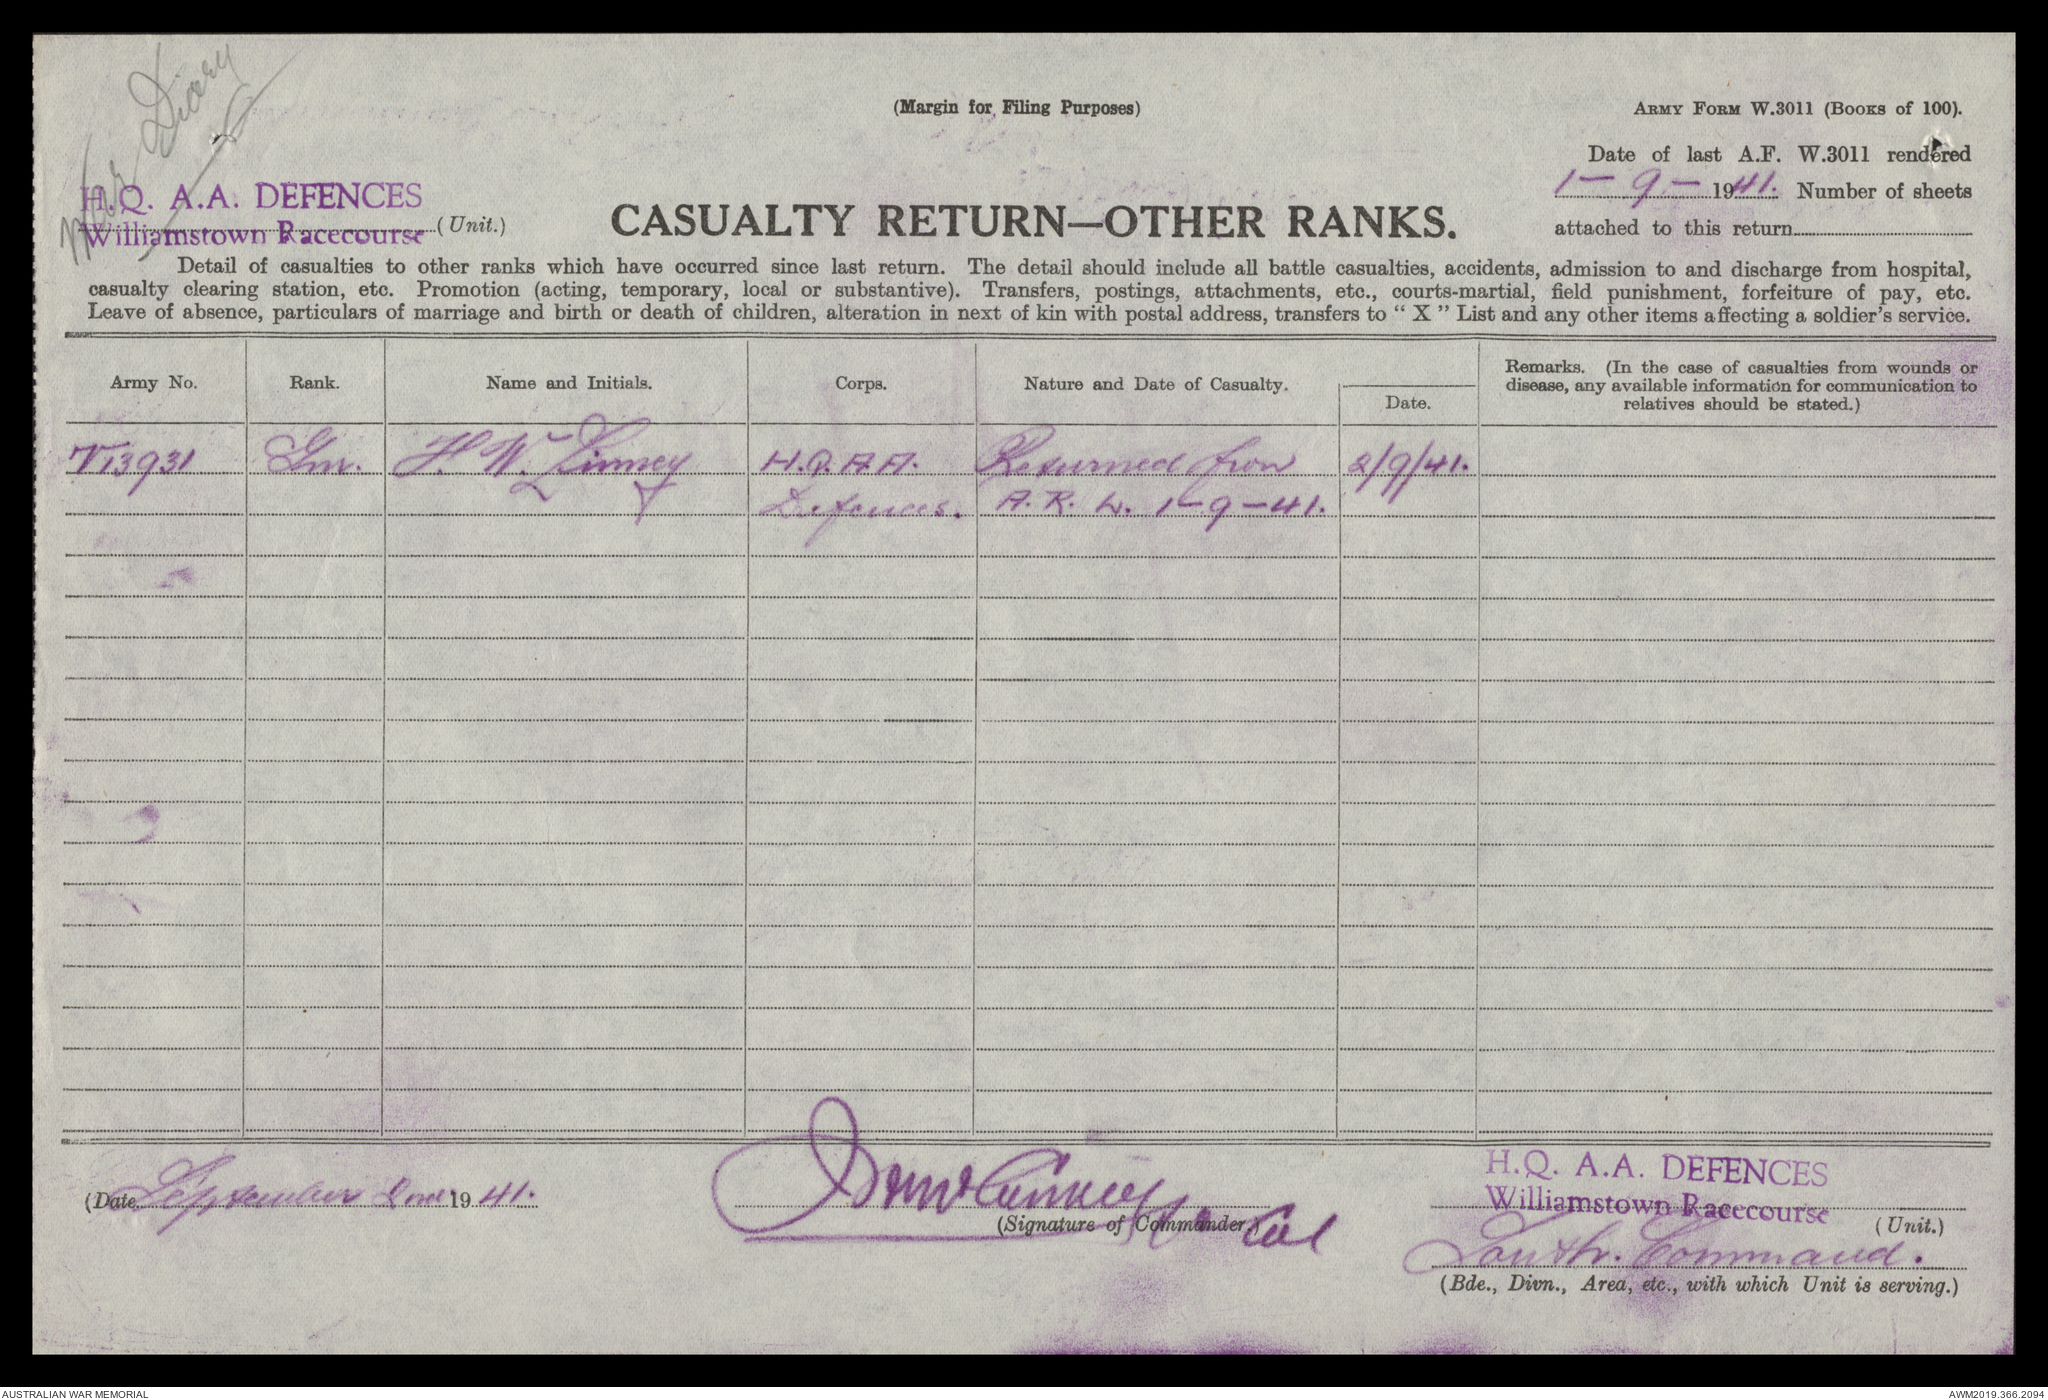 War Diary
(Margin for Filing Purposes)
ARMY FORM W.3011 (BOOKS of 100).
Date of last A.F. W.3011 rendered
1-9-1941. Number of sheets
attached to this return
H.Q. A.A. DEFENCES
Williamstown Racecourse (Unit.)
CASUALTY RETURN—OTHER RANKS.
Detail of casualties to other ranks which have occurred since last return. The detail should include all battle casualties, accidents, admission to and discharge from hospital,
casualty clearing station, etc. Promotion (acting, temporary, local or substantive). Transfers, postings, attachments, etc., courts-martial, field punishment, forfeiture of pay, etc.
Leave of absence, particulars of marriage and birth or death of children, alteration in next of kin with postal address, transfers to “ X ” List and any other items affecting a soldier’s service.
Army No. Rank. Name and Initials. Corps. Nature and Date of Casualty. Date. Remarks. (In the case of casualties from wounds or
disease, any available information for communication to
relatives should be stated.)
V13931 Gnr. W. Linney H.Q.A.A. Returned from 2/9/41.
Defences. A.R.L. 1-9-41.
(Date September 2nd 1941.
(Signature of Commander.) Col
H.Q. A.A. DEFENCES
Williamstown Racecourse
(Unit.)
South. Command.
(Bde., Divn., Area, etc., with which Unit is serving.)
AUSTRALIAN WAR MEMORIAL
AWM2019.366.2094